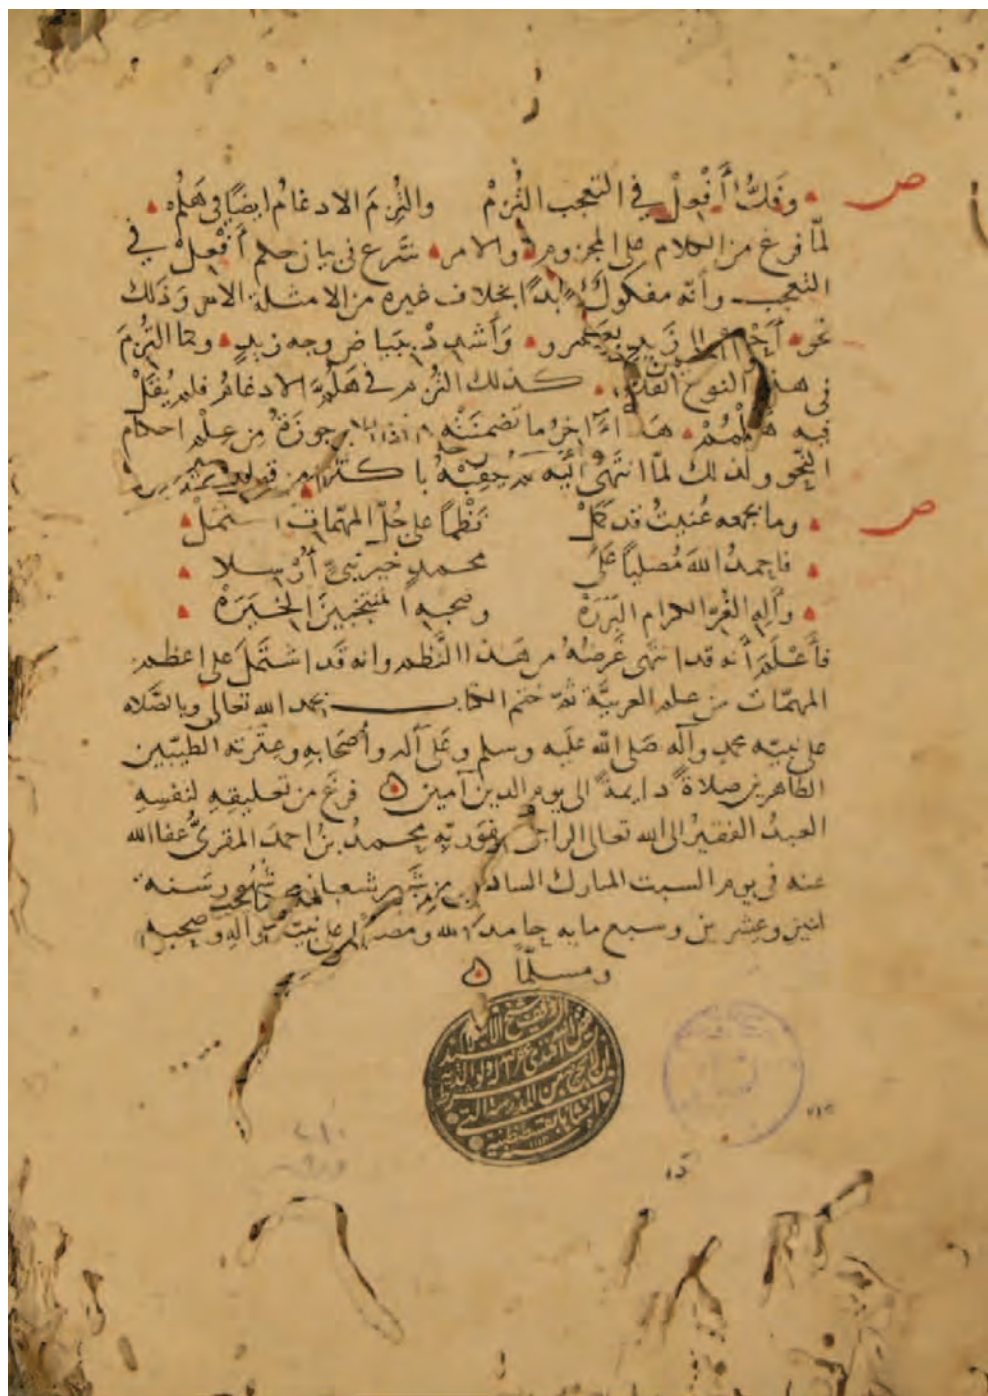 ص
وَفَكُّ أَفْعِلْ في التعجب الْتُزِمْ والْتُزِمَ الادغامُ ايضًا في هَلُمْ
لمّا فرغ من الكلام على المجزوم والامر شرع في بيان حكم أَفْعِلْ في
التعجب وأنه مفكوك ابدًا بخلاف غيره من الامثلة الامر وَذَلك
نحو زيدٍ وَأَشْدِدْ ببياض وجه زيدٍ وكما التُزِمَ
في هذا النوع الفكّ كذلك التُزم في هَلُمَّ الادغامُ فلم يُقَلْ
فيه هَلْمُمْ هذا آخِرُ ما تضمنَتْه هذه الارجوزَةُ مِن عِلْم احكام
النّحو ولذلك لمّا انتَهى اليه من قوله
ص
وما بجمعه عُنيتُ قد كمَلْ نَظْمًا على جُلّ المهمّات اشتمَلْ
فاحمدُ اللهَ مُصَلياً عَلَى محمدٍ خير نبيٍّ أُرْسِلا
وَآلِهِ الغُرّ الكرام البَرَرَهْ وصَحبِهِ المنتخَبينَ الخِيَرَهْ
فأَعْلَمَ أنه قد انتهى غَرضُهُ من هذا النَّظم وانه قد اشتَمَلَ على اعظم
المهمّات من علم العربيَّة ثمّ ختم الكتاب بحمد الله تعالى وبالصّلاه
على نبيّه محمدٍ وآله صَلى الله عَلَيه وسلم وعَلَى آله وأصْحَابهِ وعِتْرته الطيّبين
الطاهرين صلاةً دايمةً الى يوم الدين آمين فَرغَ من تعليقِهِ لنفسِهِ
العبدُ الفقيرُ الى الله تعالى الراجي عفو ربّه محمدُ بنُ احمدَ المقرئُ عفا الله
عنه في يوم السبت المبارك السادس من شهر شعبان من شهُور سَنة
اثنين وعشرين وسبع مايه حامدًا لله ومصليًا على نبيّه وآله وصحبه
ومسلّمًا